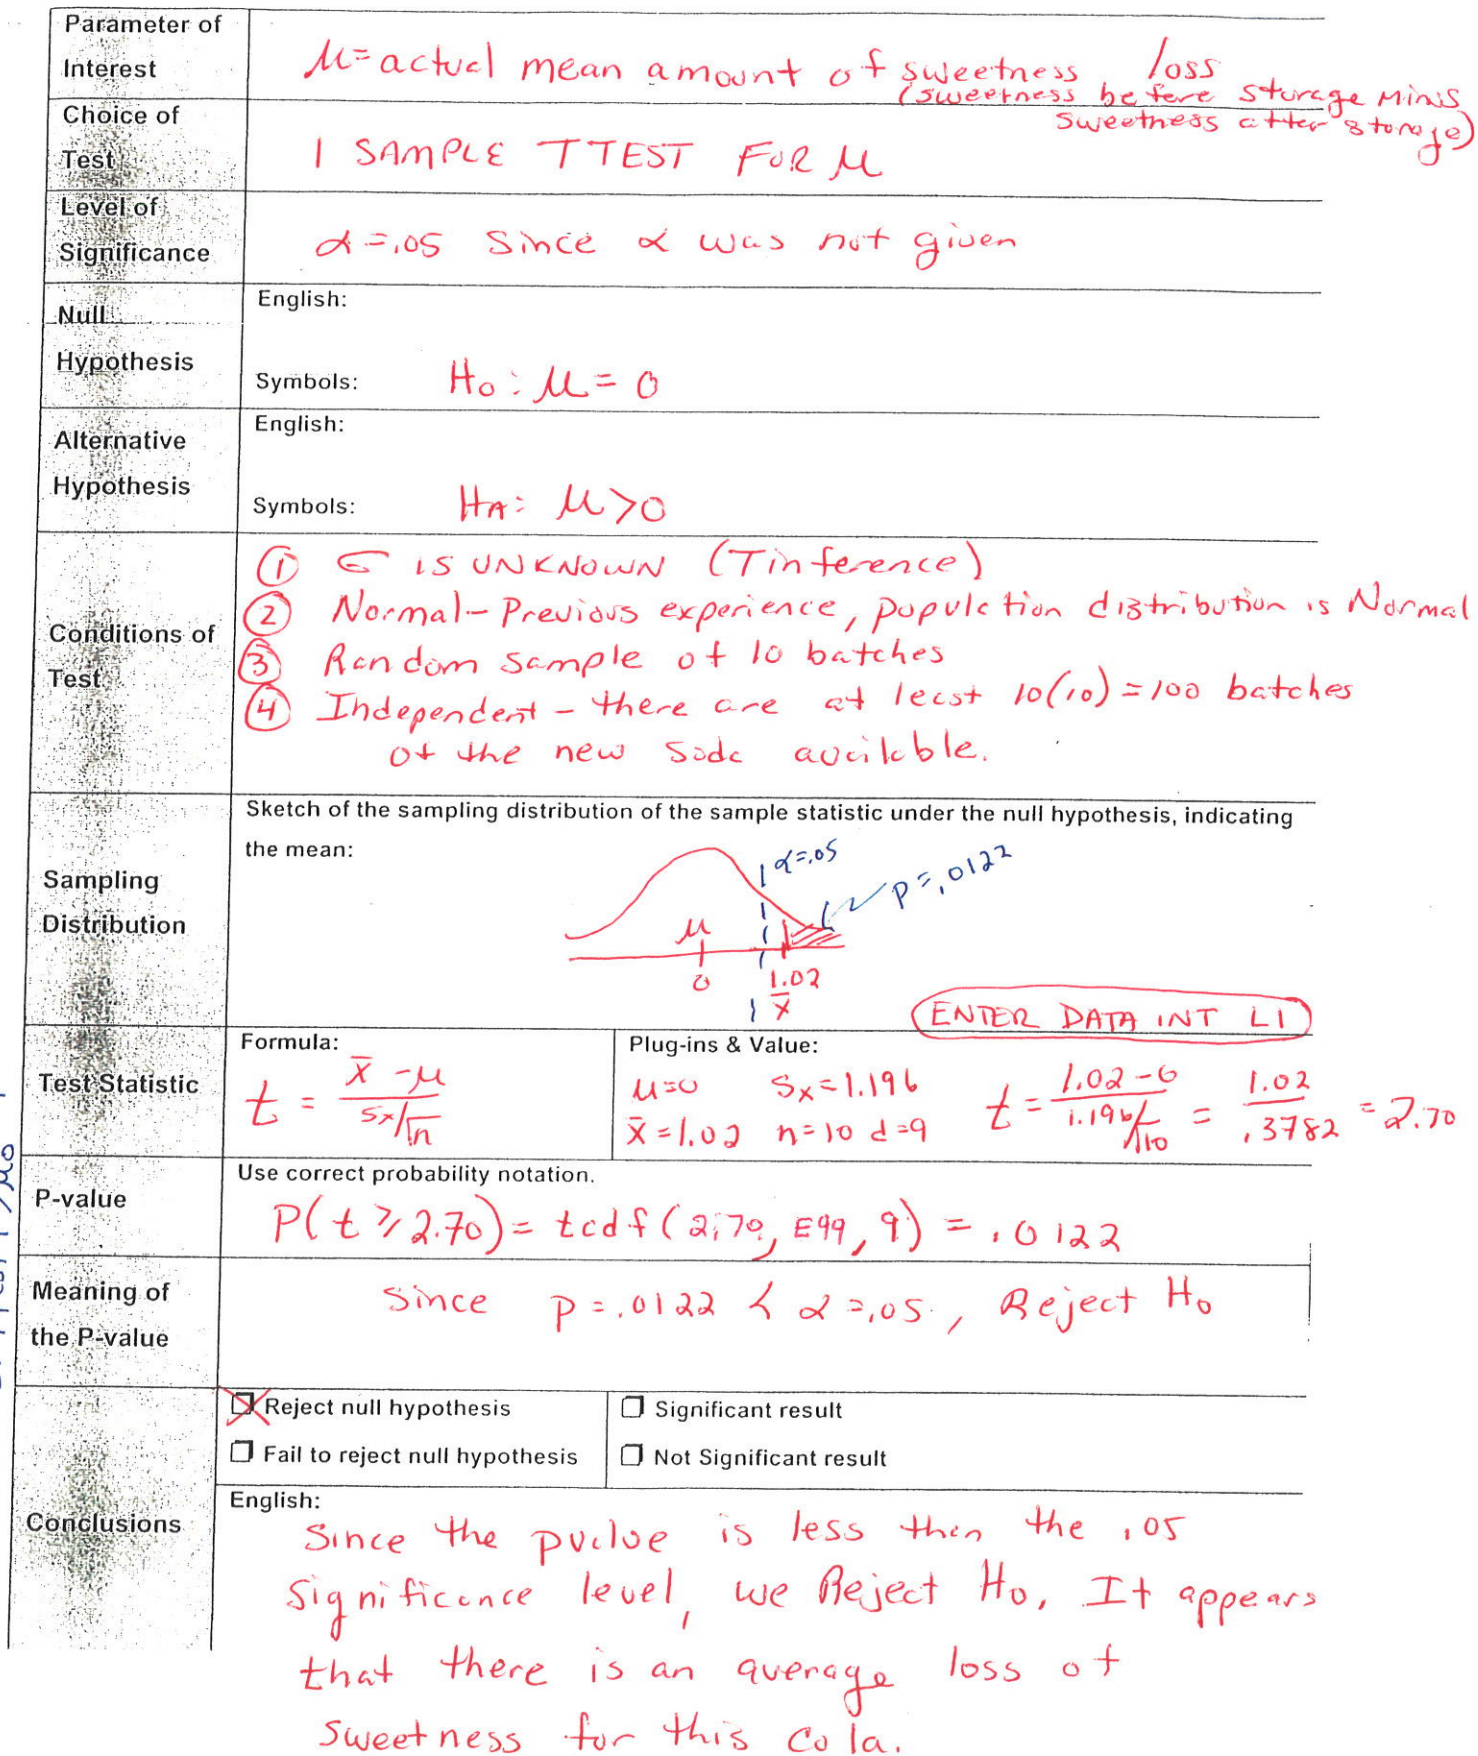 Parameter of
Interest
μ=actual mean amount of sweetness loss
(sweetness before storage minus
sweetness after storage)
Choice of
Test
1 SAMPLE T TEST FOR μ
Level of
Significance
α=.05 Since α was not given
Null
Hypothesis
English:
Symbols: H₀: μ = 0
Alternative
Hypothesis
English:
Symbols: HA: μ>0
Conditions of
Test
① σ IS UNKNOWN (T inference)
② Normal - Previous experience, population distribution is Normal
③ Random sample of 10 batches
④ Independent - there are at least 10(10)=100 batches
of the new soda available.
Sampling
Distribution
Sketch of the sampling distribution of the sample statistic under the null hypothesis, indicating
the mean:
α=.05
p=.0122
μ
0 1.02
x̄
ENTER DATA INT L1
Test Statistic
Formula:
t = (x̄ - μ)/(sx/√n)
Plug-ins & Value:
μ=0 Sx=1.196
x̄=1.02 n=10 d=9
t = (1.02-0)/(1.196/√10) = 1.02/.3782 = 2.70
P-value
Use correct probability notation.
P(t ≥ 2.70) = tcdf(2.70, E99, 9) = .0122
Meaning of
the P-value
Since p=.0122 < α=.05, Reject H₀
Conclusions
Reject null hypothesis
Fail to reject null hypothesis
Significant result
Not Significant result
English:
Since the pvalue is less then the .05
significance level, we Reject H₀. It appears
that there is an average loss of
sweetness for this cola.